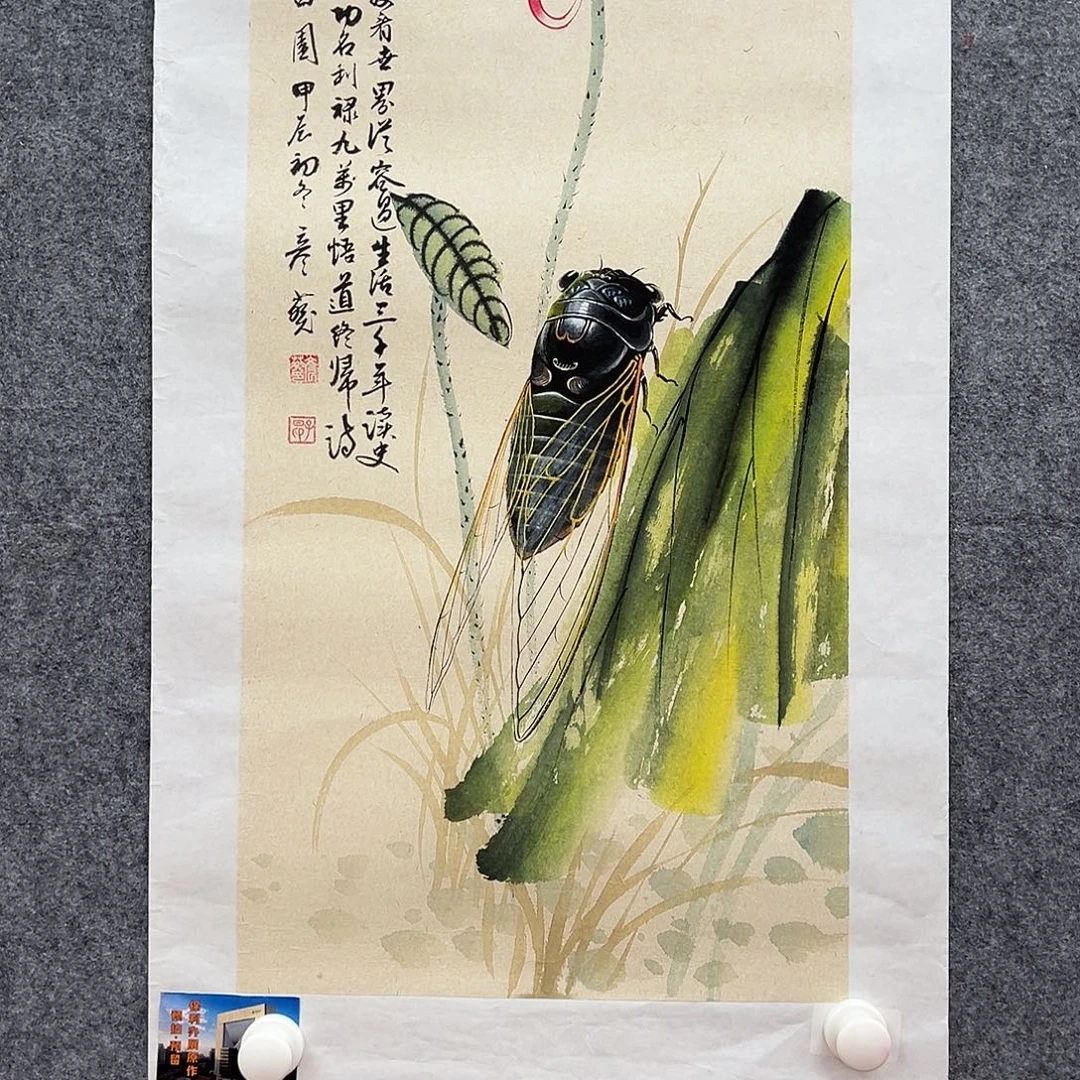 看世界從容過生活三千年讀史
功名利禄九萬里悟道終歸詩
園 甲辰初冬 彦